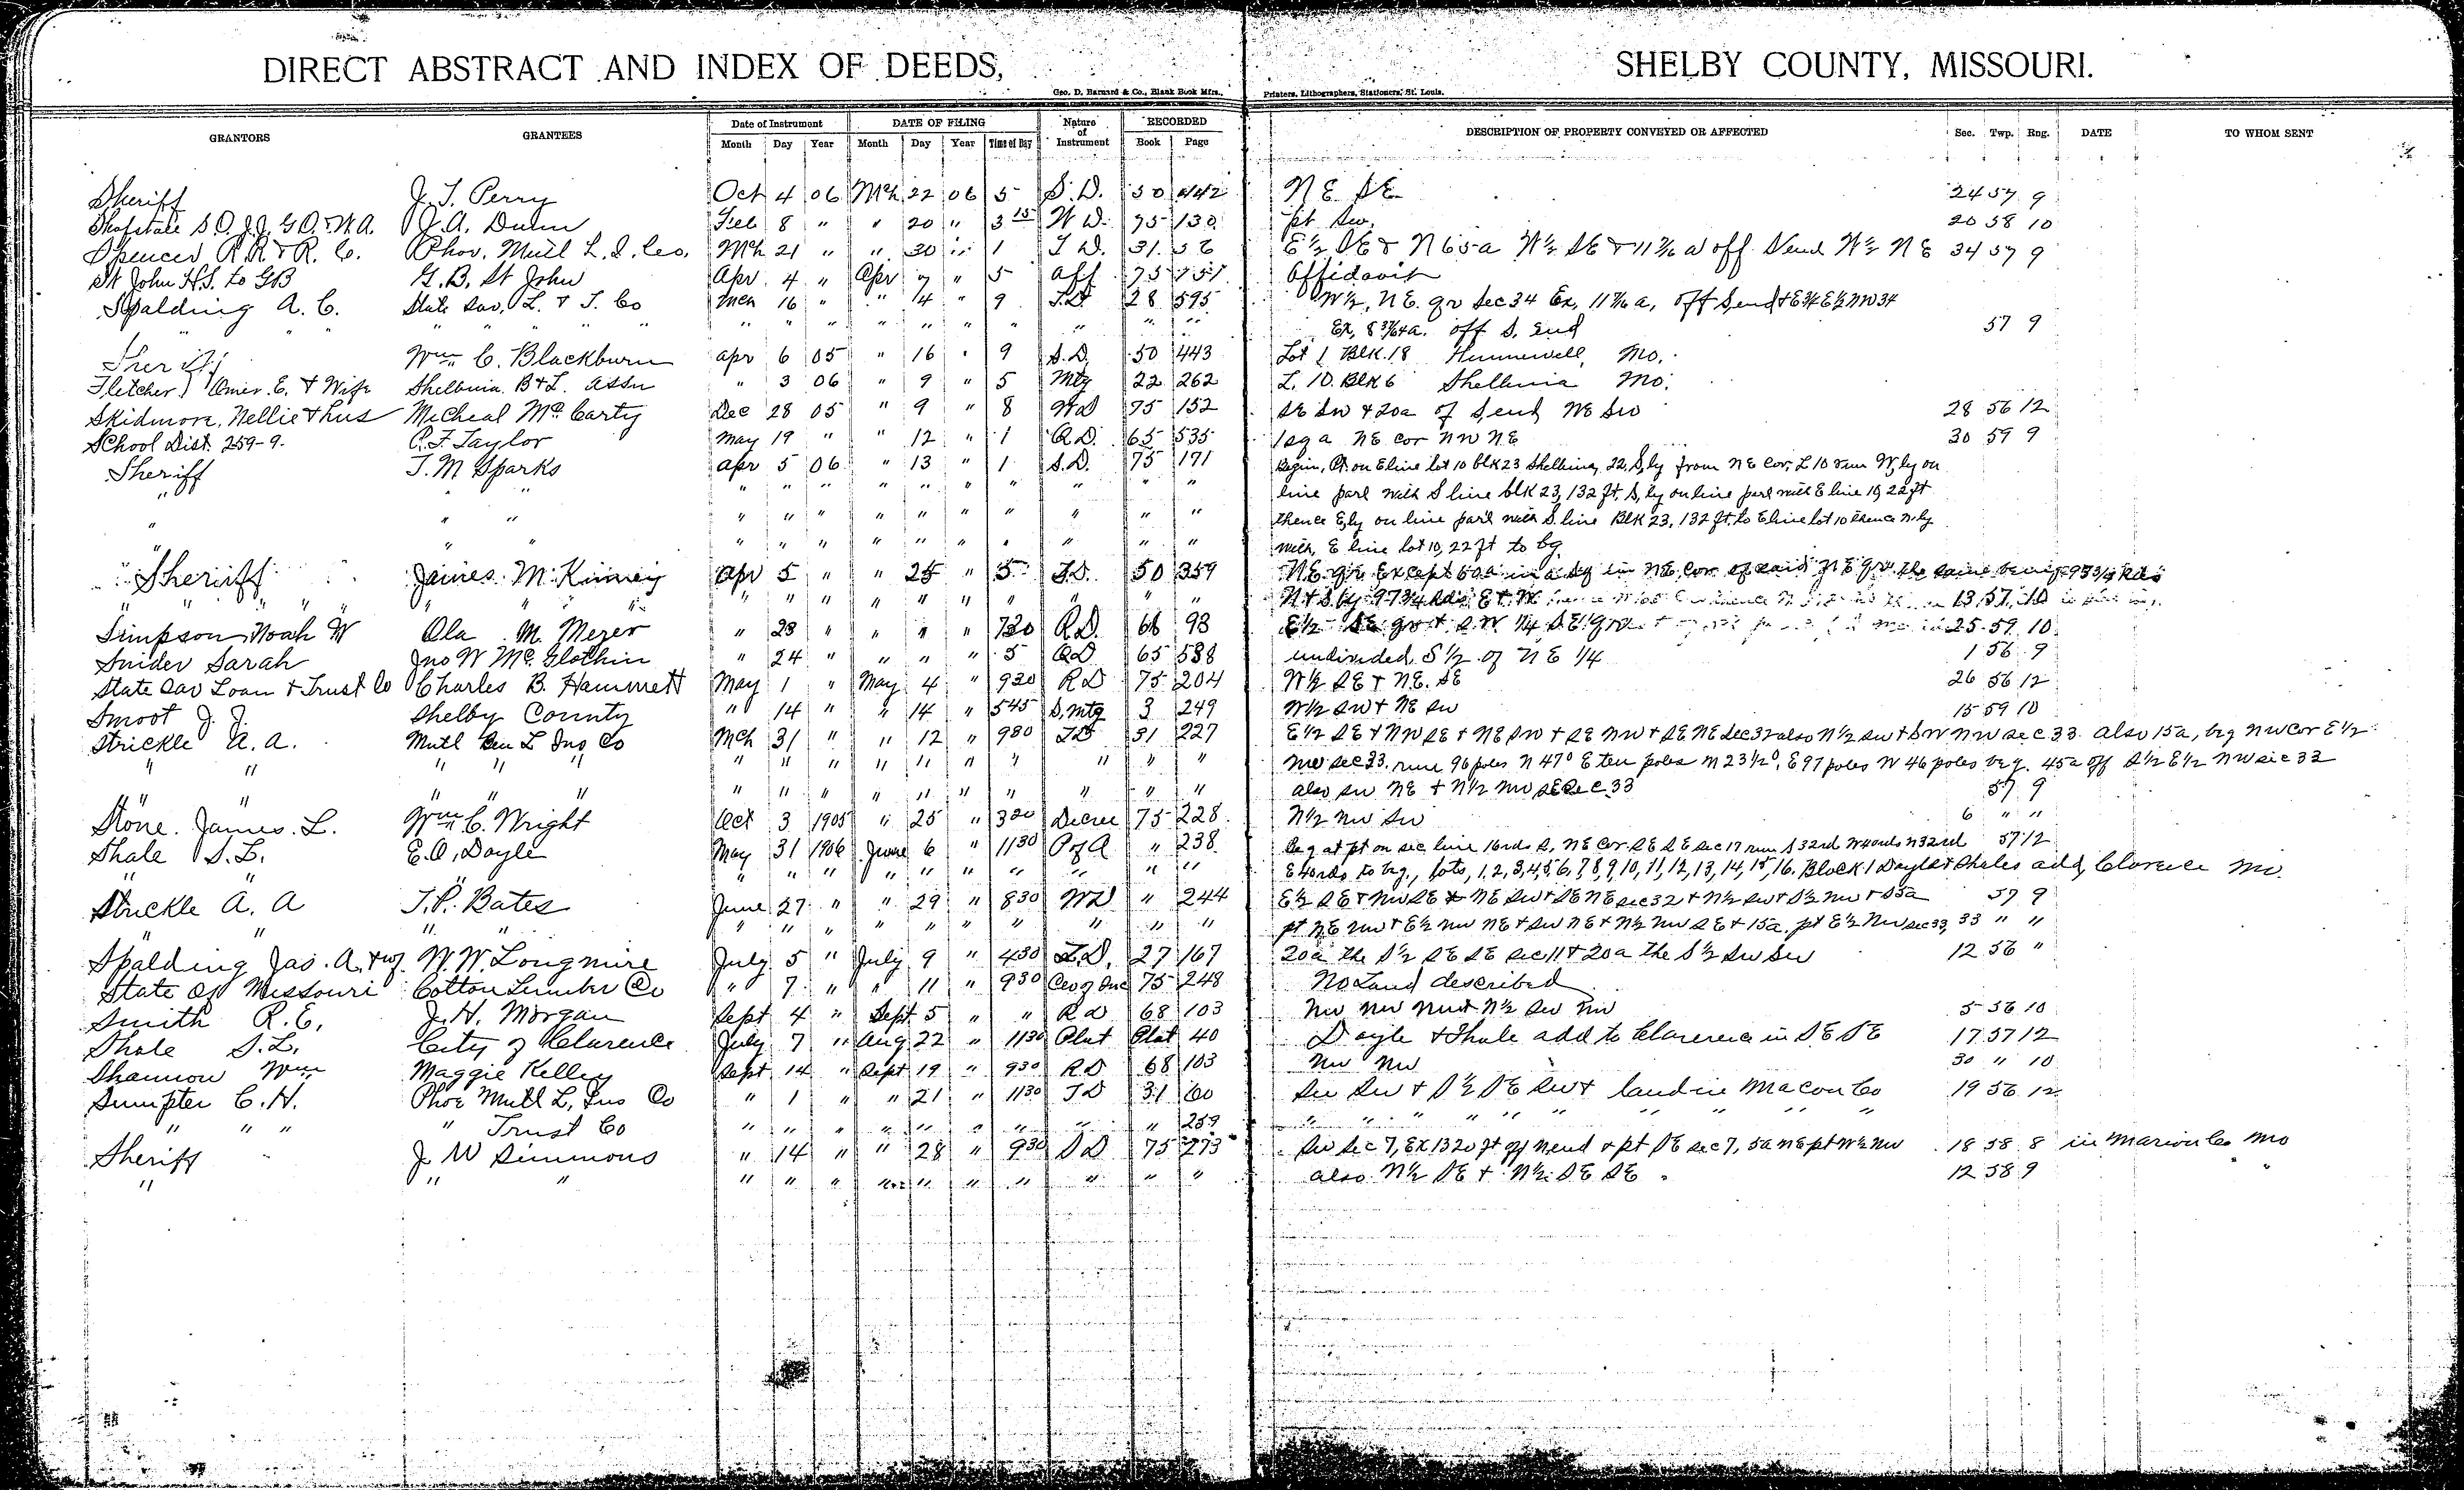 DIRECT ABSTRACT AND INDEX OF DEEDS, SHELBY COUNTY, MISSOURI.
Geo. D. Barnard & Co., Blank Book Mfrs., Printers, Lithographers, Stationers, St. Louis.
GRANTORS GRANTEES Date of Instrument DATE OF FILING Nature of Instrument RECORDED DESCRIPTION OF PROPERTY CONVEYED OR AFFECTED Sec. Twp. Rng. DATE TO WHOM SENT
Month Day Year Month Day Year Time of Day Book Page
Sheriff J. T. Perry Oct 4 06 Mch 22 06 5 S.D. 50 442 NE SE 24 57 9
J. A. Dunn Feb 8 " " 20 " 3 15 W D. 75 130 pt Sw. 20 58 10
Spencer R.R & R. C. Phoe. Mutl L. I. Co. Mch 21 " " 30 " 1 T D. 31 56 E½ SE & N 65a W½ SE & 11 7/16 a off Send W½ NE 34 57 9
St John H.S. to GB G. B. St John Apr 4 " Apr 7 " 5 aff 75 151 Affidavit
Spalding A. C. State Sav. L. & T. Co Mch 16 " " 4 " 9 T.D 28 595 W½, NE. qr Sec 34 Ex, 11 7/16 a, off Send & E¾ E½ NW 34
" " " " " " " " " " " " " " " Ex, 8 37/64 a. off S. End 57 9
Sheriff Wm C. Blackburn apr 6 05 " 16 " 9 S.D. 50 443 Lot 1 Blk. 18 Hunnewell, Mo.
Fletcher, Omer. E. & Wife Shelbina B & L. Assn " 3 06 " 9 " 5 Mtg 22 262 L. 10. Blk 6 Shelbina Mo.
Skidmore, Nellie & hus Micheal McCarty Dec 28 05 " 9 " 8 WD 75 152 SE Sw & 20a of S,end NE Sw 28 56 12
School Dist. 259-9. C. F. Taylor May 19 " " 12 " 1 Q.D. 65 535 1 sq a NE cor NW NE 30 59 9
Sheriff T. M Sparks apr 5 06 " 13 " 1 S.D. 75 171 Begin, Pt. on E line lot 10 blk 23 Shelbina, 22, S,ly from NE Cor, L 10 run W,ly on
" " " " " " " " " " " line parl with S line blk 23, 132 ft. S,ly on line parl with E line 10, 22 ft
" " " " " " " " " " " " thence E,ly on line parl with S. line Blk 23, 132 ft. to E line lot 10 thence N.ly
" " " " " " " " " " " " with, E line lot 10, 22 ft to bg
Sheriff James McKinney Apr 5 " " 25 " 5 T.D. 50 359 NE qr Except 60a in a sq in NE Cor of said NE qr the same being 97 3/4 Rds
" " " " " " " " " " " " " " N & S by 97 3/4 Rds E & W 13 57 10
Simpson Noah W Ola M. Mezer " 23 " " " " 7 30 R.D. 68 98 E½ SE qr & S.W. ¼ SE qr 25 59 10
Snider Sarah Jno W McGlothin " 24 " " " " 5 QD 65 538 undivided S ½ of NE ¼ 1 56 9
State Sav Loan & Trust Co Charles B. Hammett May 1 " May 4 " 9 30 R D 75 204 W½ SE & NE. SE 26 56 12
Smoot J. J. Shelby County " 14 " " 14 " 5 45 S. Mtg 3 249 W½ SW & NE SW 15 59 10
Strickle A. A. Mutl Ben L Ins Co Mch 31 " " 12 " 9 30 TD 31 227 E½ SE & NW SE & NE SW & SE NW & SE NE Sec 32 also N½ SW & SW NW Sec 33. also 15a, beg NW Cor E½
" " " " " " " " " " " " " " NW sec 33. run 96 poles N 47° E ten poles 23½°, E 97 poles W 46 poles beg. 45a off S½ E½ NW sec 33
" " " " " " " " " " " " " " also SW NE & N½ NW SE Sec 33 57 9
Stone. James. L. Wm C. Wright Oct 3 1905 " 25 " 3 20 Decree 75 228 N½ NW SW 6 " "
Shale S. L. E. O. Doyle May 31 1906 June 6 " 11 30 P of A " 238 Beg at pt on sec line 16 rds S, NE Cor SE SE Sec 17 run S 32 rd W 40 rds N 32 rd 57 12
" " " " " " " " " " " " E 40 rds to beg., lots, 1, 2, 3, 4, 5, 6, 7, 8, 9, 10, 11, 12, 13, 14, 15, 16, Block 1 Doyle & Shales add, Clarence Mo.
Strickle A. A T. P. Bates June 27 " " 29 " 8 30 WD " 244 E½ SE & NW SE & NE SW & SE NE sec 32 & N½ SW & S½ NW & 55a 57 9
" " " " " " " " " " " pt NE NW & E½ NW NE & SW NE & N½ NW SE & 15a. pt E½ NW sec 33, 33 " "
Spalding Jas. A. & wf. W. W. Longmire July 5 " July 9 " 4 30 T.D. 27 167 20a the S½ SE SE Sec 11 & 20a the S½ SW SW 12 56 "
State of Missouri Cotton Lumber Co " 7 " " 11 " 9 30 Cer of Inc 75 248 No Land described
Smith R. E. J. H. Morgan Sept 4 " Sept 5 " " R D 68 103 NW NW NW & N½ SW NW 5 56 10
Shale S. L. City of Clarence July 7 " Aug 22 " 11 30 Plat Plat 40 Doyle & Shale add to Clarence in SE SE 17 57 12
Shannon Wm Maggie Kelley Sept 14 " Sept 19 " 9 30 RD 68 103 NW NW 30 " 10
Sumpter C. H. Phoe Mutl L, Ins Co " 1 " " 21 " 11 30 T D 31 60 SW SW & S½ SE SW & land in Macon Co 19 56 12
" " " " Trust Co " " " " " " " " " 259 " " " " " " " " " "
Sheriff J W Simmons " 14 " " 28 " 9 30 S D 75 273 SW Sec 7, Ex 1320 ft off N end & pt SE sec 7, 5a NE pt W½ NW 18 58 8 in Marion Co Mo
" " " " " " " " " " " " " also N½ SE & N½ SE SE 12 58 9 "